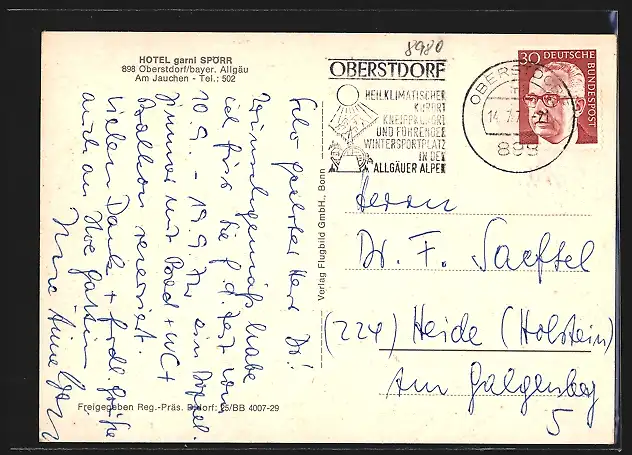 8980
HOTEL garni SPÖRR
898 Oberstdorf/bayer. Allgäu
Am Jauchen - Tel.: 502
OBERSTDORF
HEILKLIMATISCHER
KURORT
KNEIPPKURORT
UND FÜHRENDER
WINTERSPORTPLATZ
IN DEN
ALLGÄUER ALPEN
OBERSTDORF
14.7.71-21
898
30 DEUTSCHE
BUNDESPOST
Sehr geehrter Herr Dr!
Wunschgemäß habe
ich für Sie f. d. Zeit von
10.9. - 19.9.71 ein Doppel-
zimmer mit Bad + WC +
Balkon reserviert.
Vielen Dank + frdl. Grüße
auch an Ihre Gattin
Ihre
Verlag Flugbild GmbH., Bonn
Herrn
Dr. F. Saeftel
(224) Heide (Holstein)
Am Galgenberg
5
Freigegeben Reg.-Präs. D'dorf: 15/BB 4007-29